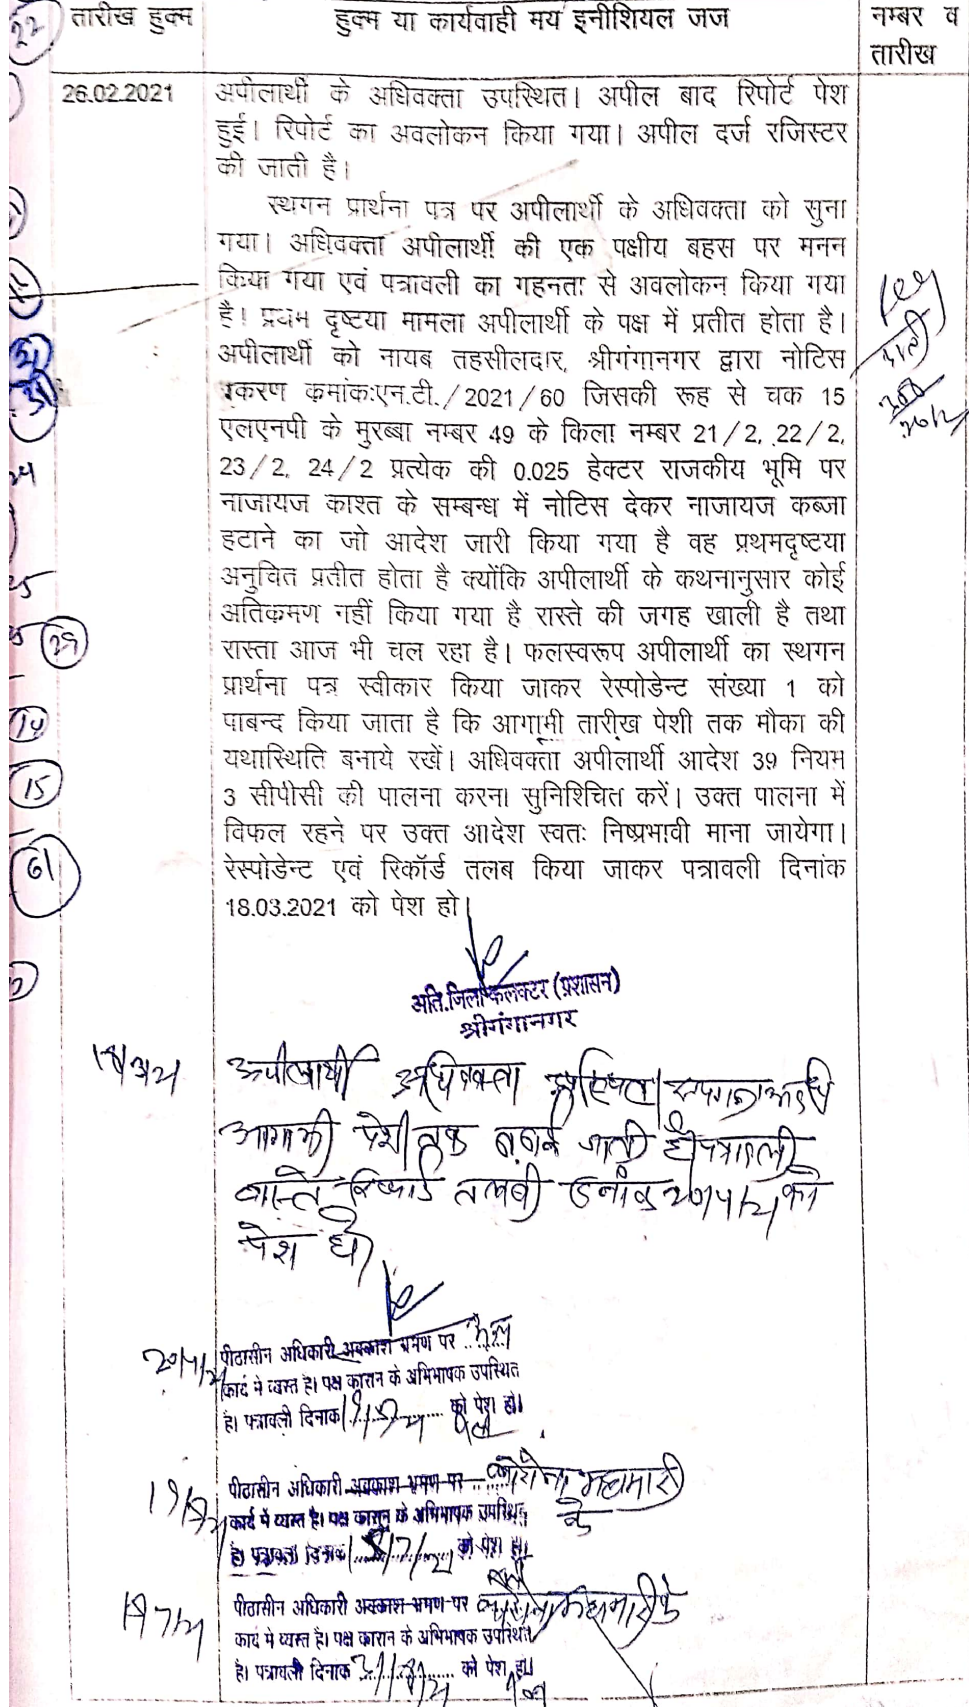 तारीख हुक्म
हुक्म या कार्यवाही मय इनीशियल जज
नम्बर व
तारीख
26.02.2021
अपीलार्थी के अधिवक्ता उपस्थित। अपील बाद रिपोर्ट पेश
हुई। रिपोर्ट का अवलोकन किया गया। अपील दर्ज रजिस्टर
की जाती है।
स्थगन प्रार्थना पत्र पर अपीलार्थी के अधिवक्ता को सुना
गया। अधिवक्ता अपीलार्थी की एक पक्षीय बहस पर मनन
किया गया एवं पत्रावली का गहनता से अवलोकन किया गया
है। प्रथम दृष्टया मामला अपीलार्थी के पक्ष में प्रतीत होता है।
अपीलार्थी को नायब तहसीलदार, श्रीगंगानगर द्वारा नोटिस
प्रकरण कमांकःएन.टी./2021/60 जिसकी रूह से चक 15
एलएनपी के मुरब्बा नम्बर 49 के किला नम्बर 21/2, 22/2,
23/2, 24/2 प्रत्येक की 0.025 हेक्टर राजकीय भूमि पर
नाजायज काश्त के सम्बन्ध में नोटिस देकर नाजायज कब्जा
हटाने का जो आदेश जारी किया गया है वह प्रथमदृष्टया
अनुचित प्रतीत होता है क्योंकि अपीलार्थी के कथनानुसार कोई
अतिकमण नहीं किया गया है रास्ते की जगह खाली है तथा
रास्ता आज भी चल रहा है। फलस्वरूप अपीलार्थी का स्थगन
प्रार्थना पत्र स्वीकार किया जाकर रेस्पोडेन्ट संख्या 1 को
पाबन्द किया जाता है कि आगामी तारीख पेशी तक मौका की
यथास्थिति बनाये रखें। अधिवक्ता अपीलार्थी आदेश 39 नियम
3 सीपीसी की पालना करना सुनिश्चित करें। उक्त पालना में
विफल रहने पर उक्त आदेश स्वतः निष्प्रभावी माना जायेगा।
रेस्पोडेन्ट एवं रिकॉर्ड तलब किया जाकर पत्रावली दिनांक
18.03.2021 को पेश हो।
अति.जिला कलक्टर (प्रशासन)
श्रीगंगानगर
अपीलार्थी अधिवक्ता उपस्थित। स्थगन अवधि
आगामी पेशी तक बढाई जाती है। पत्रावली
वास्ते रिकार्ड तलबी दिनांक 20/4/21 को
पेश हो।
20/4/21 पीठासीन अधिकारी अवकाश भ्रमण पर
कार्य मे व्यस्त है। पक्ष कारान के अभिभाषक उपस्थित
है। पत्रावली दिनांक को पेश हो।
पीठासीन अधिकारी अवकाश भ्रमण पर कोरोना महामारी
के
कार्य मे व्यस्त है। पक्ष कारान के अभिभाषक उपस्थित
है। पत्रावली दिनांक को पेश हो।
पीठासीन अधिकारी अवकाश भ्रमण पर कोरोना महामारी के
कार्य मे व्यस्त है। पक्ष कारान के अभिभाषक उपस्थित
है। पत्रावली दिनांक को पेश हो।
29
14
15
61